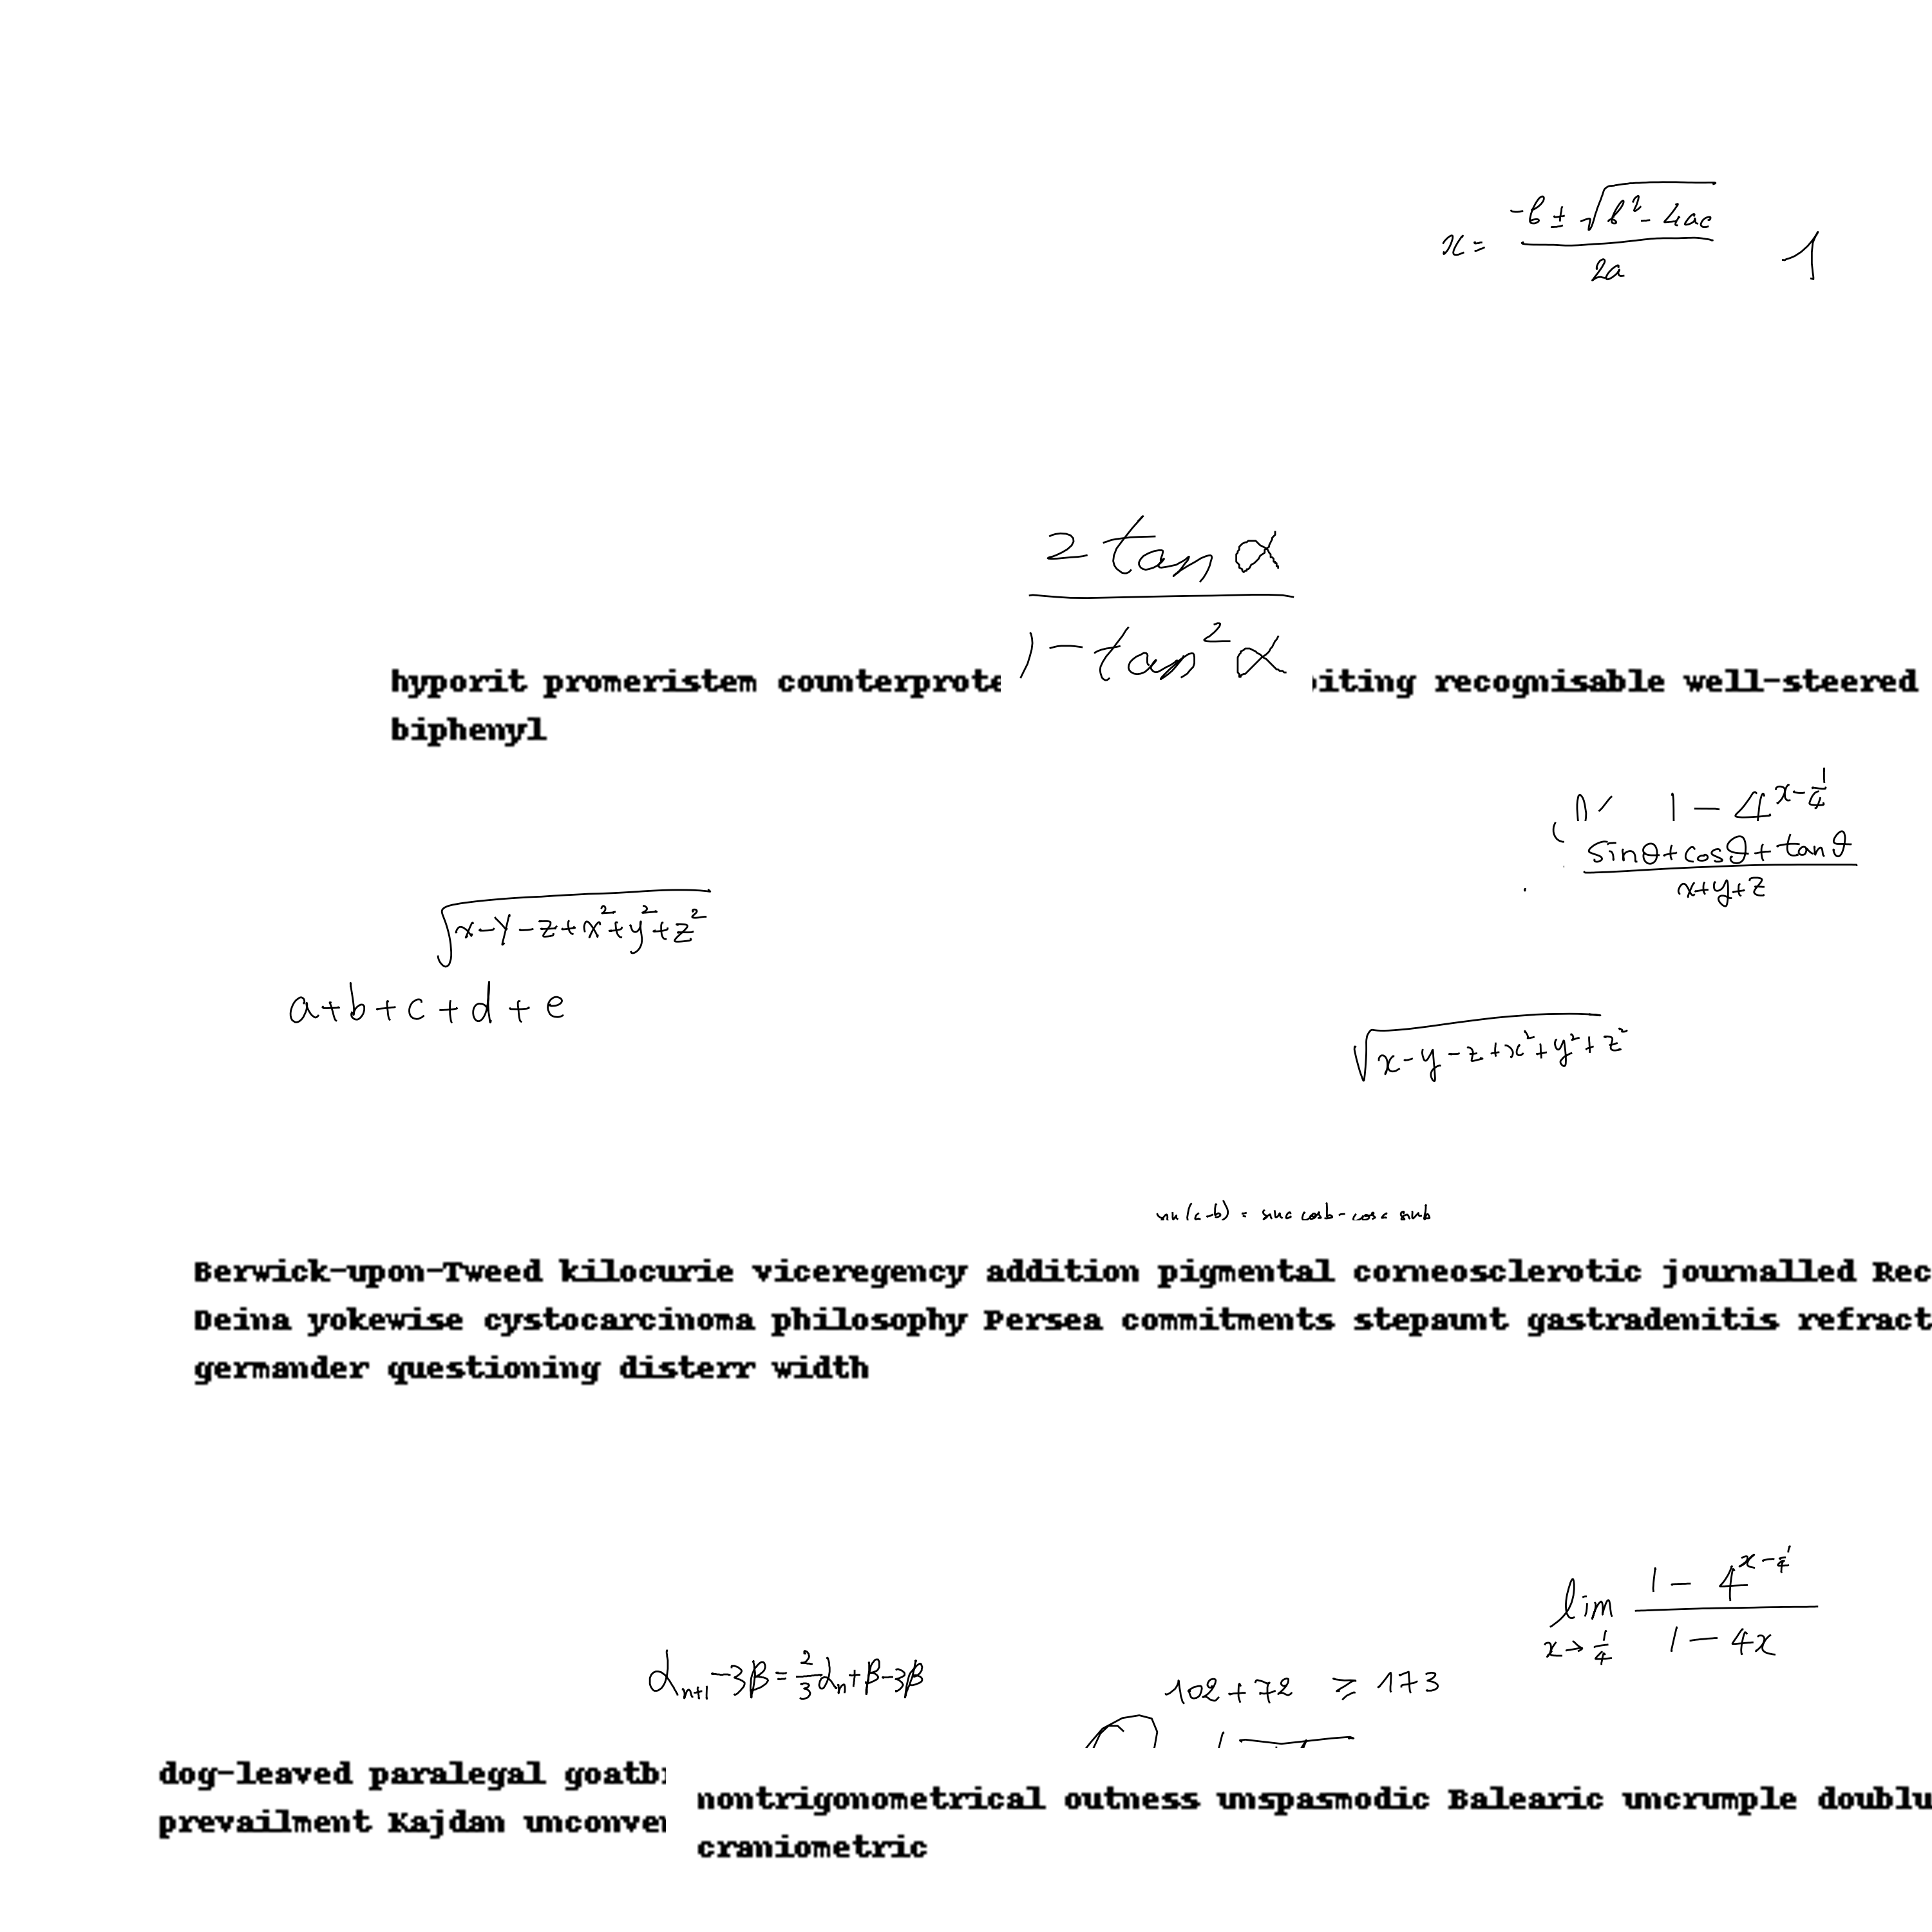 x = \frac{-b ± \sqrt{b^2 - 4ac}}{2a}
1
\frac{2 tan α}{1 - tan^2 α}
hyporit promeristem recognisable well-steered
biphenyl
1 - 4^{x - \frac{1}{4}}
\frac{sin θ + cos θ + tan θ}{x + y + z}
\sqrt{x - y - z + x^2 + y^2 + z^2}
a + b + c + d + e
\sqrt{x - y - z + x^2 + y^2 + z^2}
Berwick-upon-Tweed kilocurie viceregency addition pigmental corneosclerotic journalled
Deina yokewise cystocarcinoma philosophy Persea commitments stepaunt gastradenitis
germander questioning disterr width
lim_{x → \frac{1}{4}} \frac{1 - 4^{x - \frac{1}{4}}}{1 - 4x}
α_{n+1} - 3β = \frac{2}{3} α_n + β - 3β
102 + 72 ≥ 173
dog-leaved paralegal
prevailment Kajdan
nontrigonometrical outness unspasmodic Balearic uncrumple
craniometric